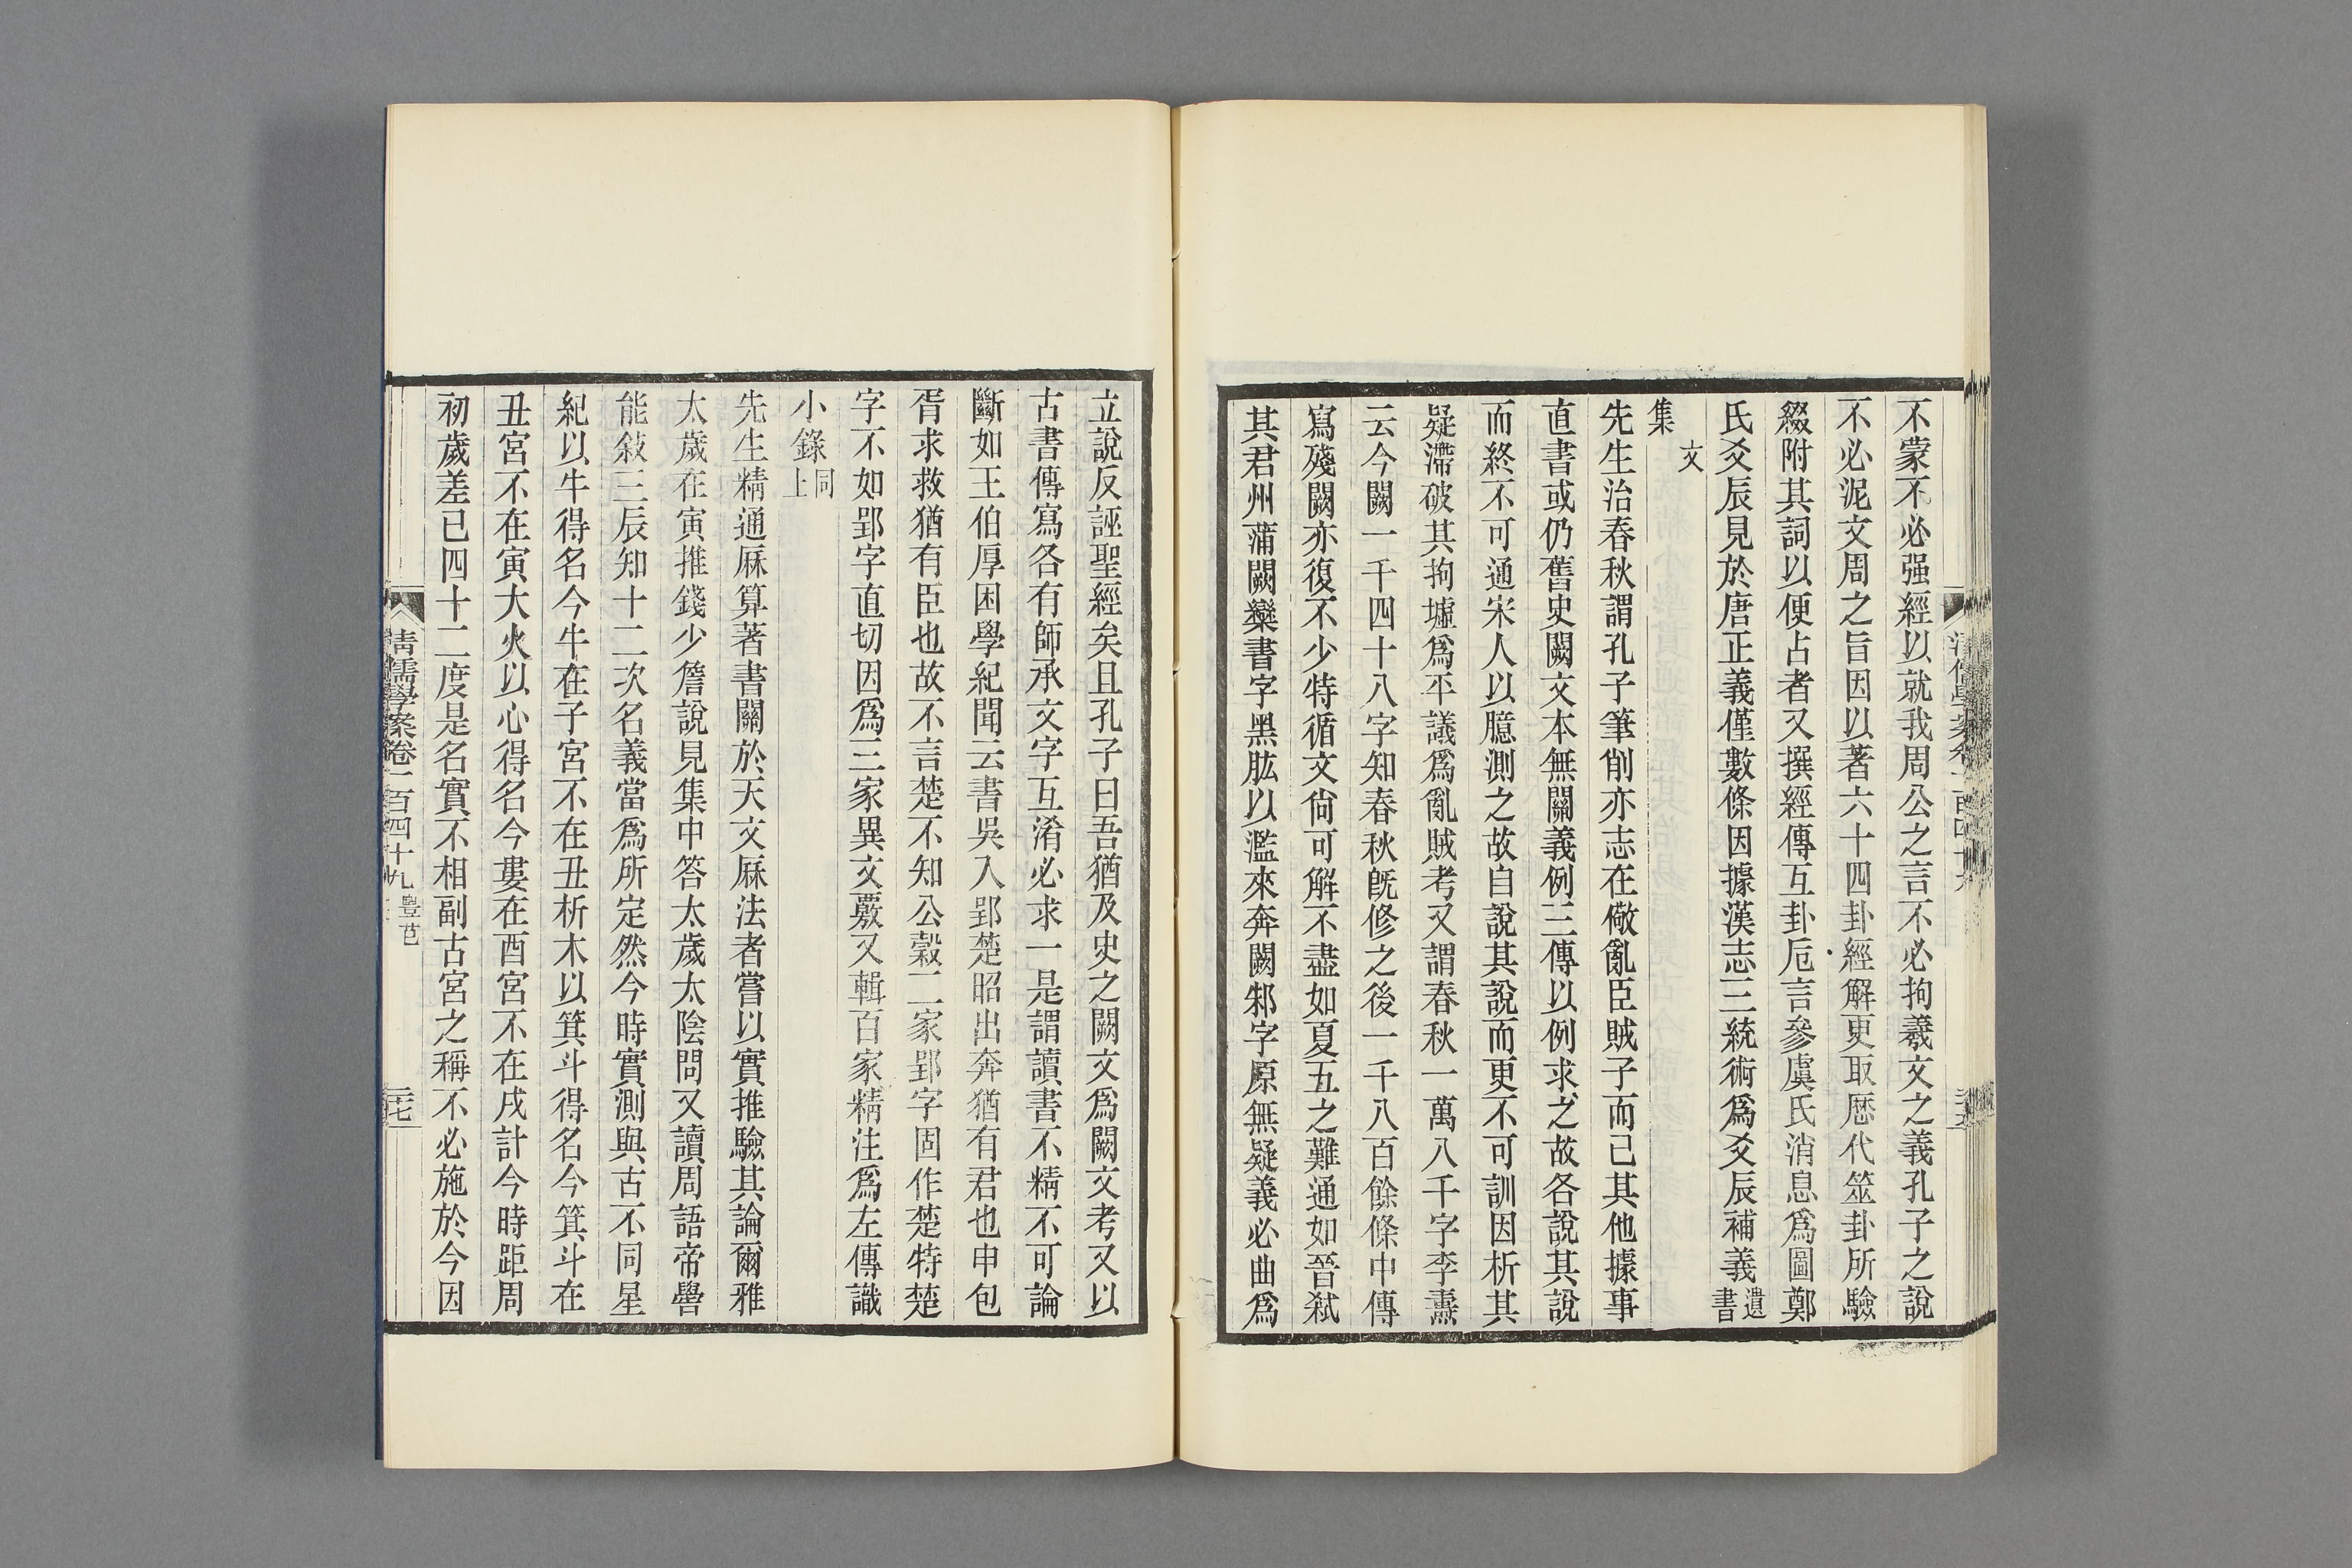 不蒙不必强經以就我周公之言不必拘羲文之義孔子之說
不必泥文周之旨因以著六十四卦經解更取歷代筮卦所驗
綴附其詞以便占者又撰經傳互卦卮言參虞氏消息爲圖鄭
氏爻辰見於唐正義僅數條因據漢志三統術爲爻辰補義遺書
文集
先生治春秋謂孔子筆削亦志在儆亂臣賊子而已其他據事
直書或仍舊史闕文本無關義例三傳以例求之故各說其說
而終不可通宋人以臆測之故自說其說而更不可訓因析其
疑滯破其拘墟爲平議爲亂賊考又謂春秋一萬八千字李燾
云今闕一千四十八字知春秋旣修之後一千八百餘條中傳
寫殘闕亦復不少特循文尙可解不盡如夏五之難通如晉弒
其君州蒲闕欒書字黑肱以濫來奔闕邾字原無疑義必曲爲
立說反誣聖經矣且孔子曰吾猶及史之闕文爲闕文考又以
古書傳寫各有師承文字互淆必求一是謂讀書不精不可論
斷如王伯厚困學紀聞云書吳入郢楚昭出奔猶有君也申包
胥求救猶有臣也故不言楚不知公穀二家郢字固作楚特楚
字不如郢字直切因爲三家異文覈又輯百家精注爲左傳識
小錄同上
先生精通厤算著書關於天文厤法者嘗以實推驗其論爾雅
太歲在寅推錢少詹說見集中答太歲太陰問又讀周語帝嚳
能敍三辰知十二次名義當爲所定然今時實測與古不同星
紀以牛得名今牛在子宮不在丑析木以箕斗得名今箕斗在
丑宮不在寅大火以心得名今婁在酉宮不在戌計今時距周
初歲差已四十二度是名實不相副古宮之稱不必施於今因
清儒學案卷一百四十九 豐芑 二十七